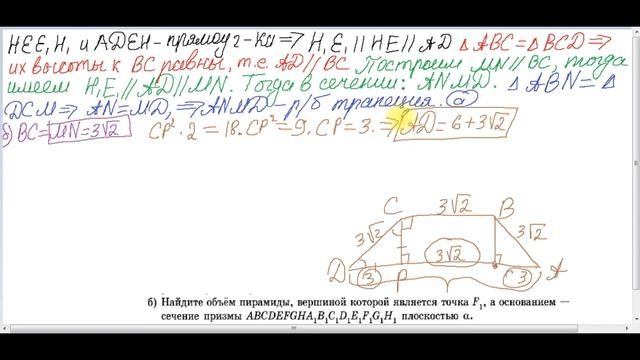 HEE₁H₁ и ADEH - прямоуг-ки ⇒ H₁E₁ || HE || AD △ABC = △BCD ⇒
их высоты к BC равны, т.е. AD || BC Построим MN || BC, тогда
имеем H₁E₁ || AD || MN. Тогда в сечении: ANMD. △ABN = △
DCM ⇒ AN = MD, ⇒ ANMD - р/б трапеция. а
б) BC = MN = 3√2 CP² · 2 = 18. CP² = 9. CP = 3. ⇒ AD = 6 + 3√2
C 3√2 B
3√2 3√2
D 3 P 3√2 3 A
б) Найдите объём пирамиды, вершиной которой является точка F₁, а основанием —
сечение призмы ABCDEFGHA₁B₁C₁D₁E₁F₁G₁H₁ плоскостью α.